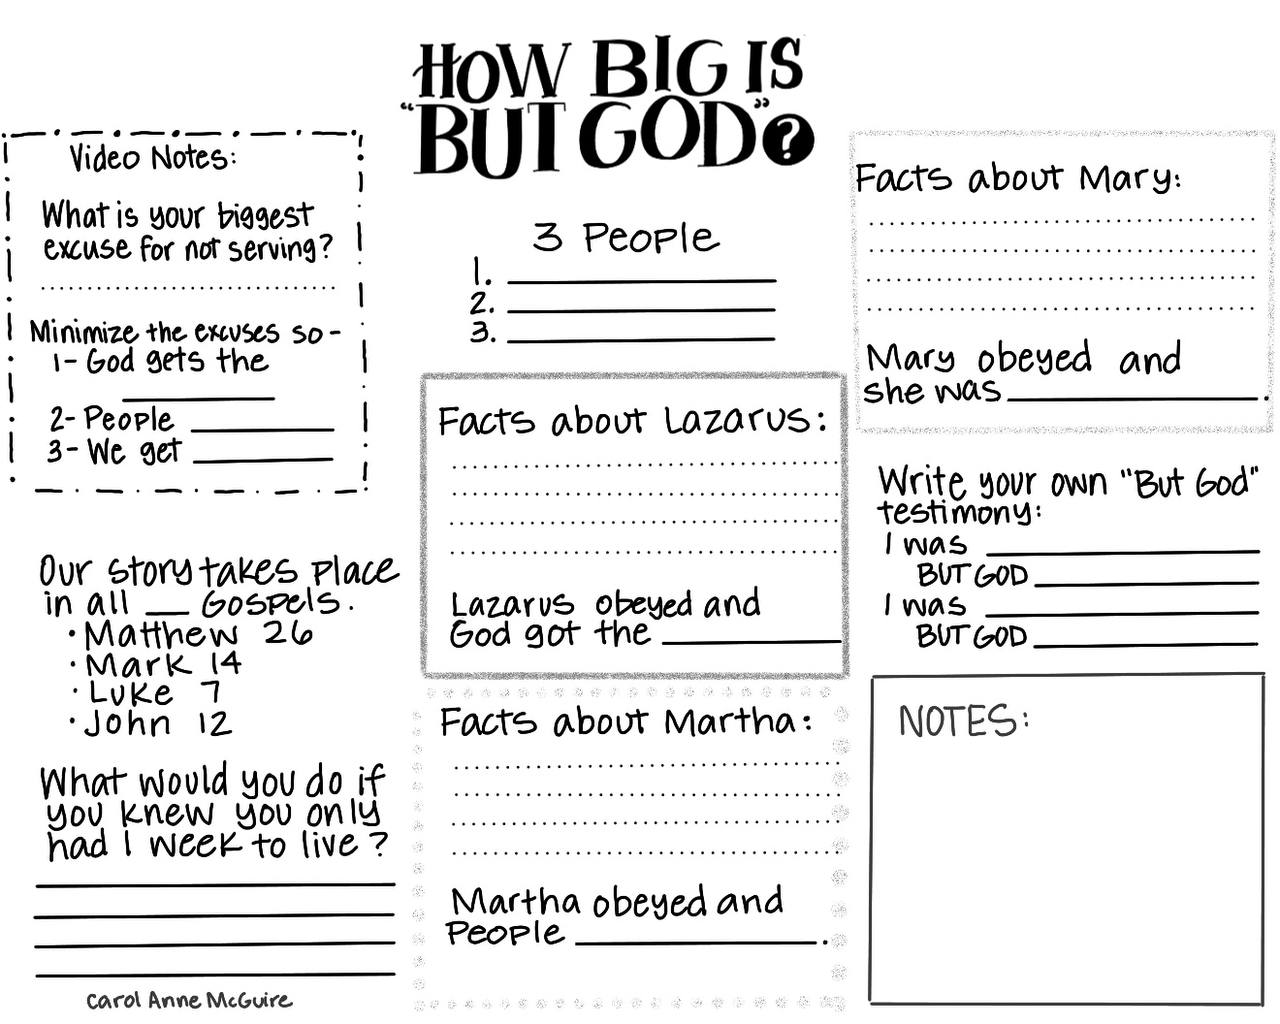 HOW BIG IS
"BUT GOD"?
Video Notes:
What is your biggest
excuse for not serving?
Minimize the excuses so -
1- God gets the
2- People
3- We get
Our story takes place
in all __ Gospels.
• Matthew 26
• Mark 14
• Luke 7
• John 12
What would you do if
you knew you only
had 1 week to live?
Carol Anne McGuire
3 People
1.
2.
3.
Facts about Lazarus:
Lazarus obeyed and
God got the
Facts about Martha:
Martha obeyed and
People .
Facts about Mary:
Mary obeyed and
she was .
Write your own "But God"
testimony:
I was
BUT GOD
I was
BUT GOD
NOTES: